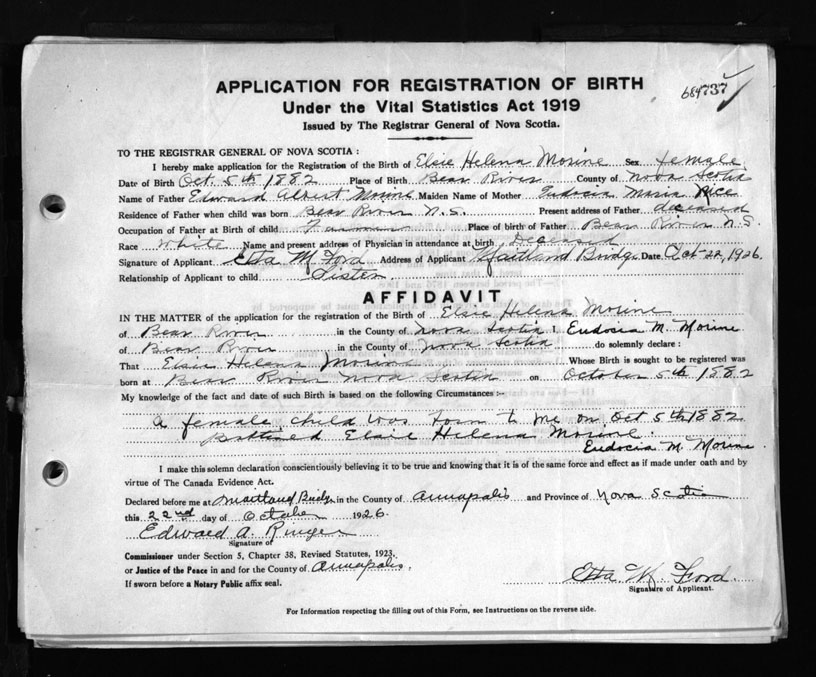 APPLICATION FOR REGISTRATION OF BIRTH
684737
Under the Vital Statistics Act 1919
Issued by The Registrar General of Nova Scotia.
TO THE REGISTRAR GENERAL OF NOVA SCOTIA :
I hereby make application for the Registration of the Birth of Elsie Helena Morine Sex female
Date of Birth Oct. 5th 1882 Place of Birth Bear River County of Nova Scotia
Name of Father Edward Albert Morine Maiden Name of Mother Eudocia Maria Rice
Residence of Father when child was born Bear River N.S. Present address of Father deceased
Occupation of Father at Birth of child Farmer Place of birth of Father Bear River N.S.
Race White Name and present address of Physician in attendance at birth Deceased
Signature of Applicant Etta M Ford Address of Applicant Maitland Bridge Date Oct 22, 1926
Relationship of Applicant to child Sister
AFFIDAVIT
IN THE MATTER of the application for the registration of the Birth of Elsie Helena Morine
of Bear River in the County of Nova Scotia I, Eudocia M. Morine
of Bear River in the County of Nova Scotia do solemnly declare :
That Elsie Helena Morine Whose Birth is sought to be registered was
born at Bear River Nova Scotia on October 5th 1882
My knowledge of the fact and date of such Birth is based on the following Circumstances :-
A female child was born to me on Oct 5th 1882
Elsie Helena Morine.
Eudocia M. Morine
I make this solemn declaration conscientiously believing it to be true and knowing that it is of the same force and effect as if made under oath and by
virtue of The Canada Evidence Act.
Declared before me at Maitland Bridge in the County of Annapolis and Province of Nova Scotia
this 22nd day of October 1926
Edward A. Ringer
Signature of
Commissioner under Section 5, Chapter 38, Revised Statutes, 1923.
or Justice of the Peace in and for the County of Annapolis.
If sworn before a Notary Public affix seal.
Etta M. Ford.
Signature of Applicant.
For Information respecting the filling out of this Form, see Instructions on the reverse side.